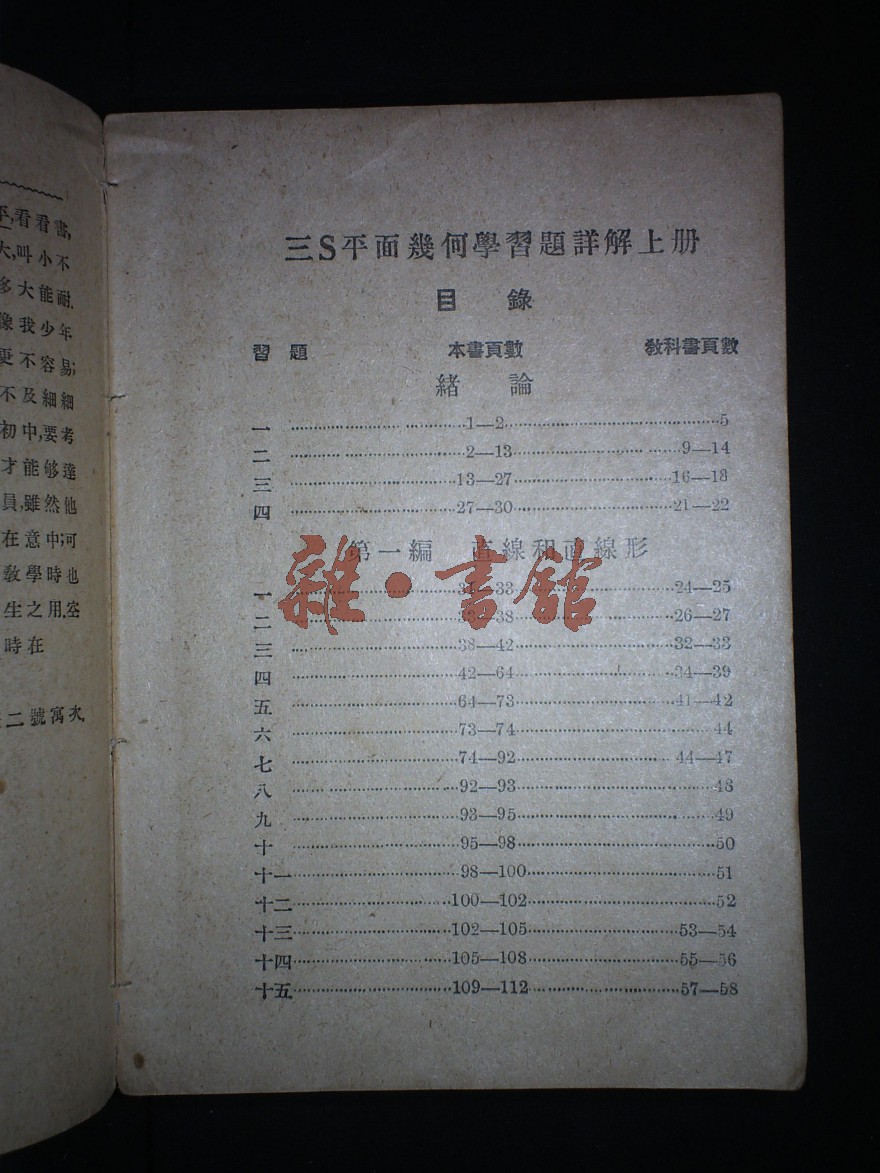 平,看看書,
大,叫小不
多大能耐.
像我少年
更不容易;
不及細細
初中,要考
才能够達
員,雖然他
在意中;可
教學時也
生之用.空
時在
二號寓次
三S平面幾何學習題詳解上册
目 錄
習 題 本書頁數 教科書頁數
緒 論
一 1—2 5
二 2—13 9—14
三 13—27 16—18
四 27—30 21—22
第一編 直線和直線形
一 31—33 24—25
二 —38 26—27
三 38—42 32—33
四 42—64 34—39
五 64—73 41—42
六 73—74 44
七 74—92 44—47
八 92—93 48
九 93—95 49
十 95—98 50
十一 98—100 51
十二 100—102 52
十三 102—105 53—54
十四 105—108 55—56
十五 109—112 57—58
雜·書館